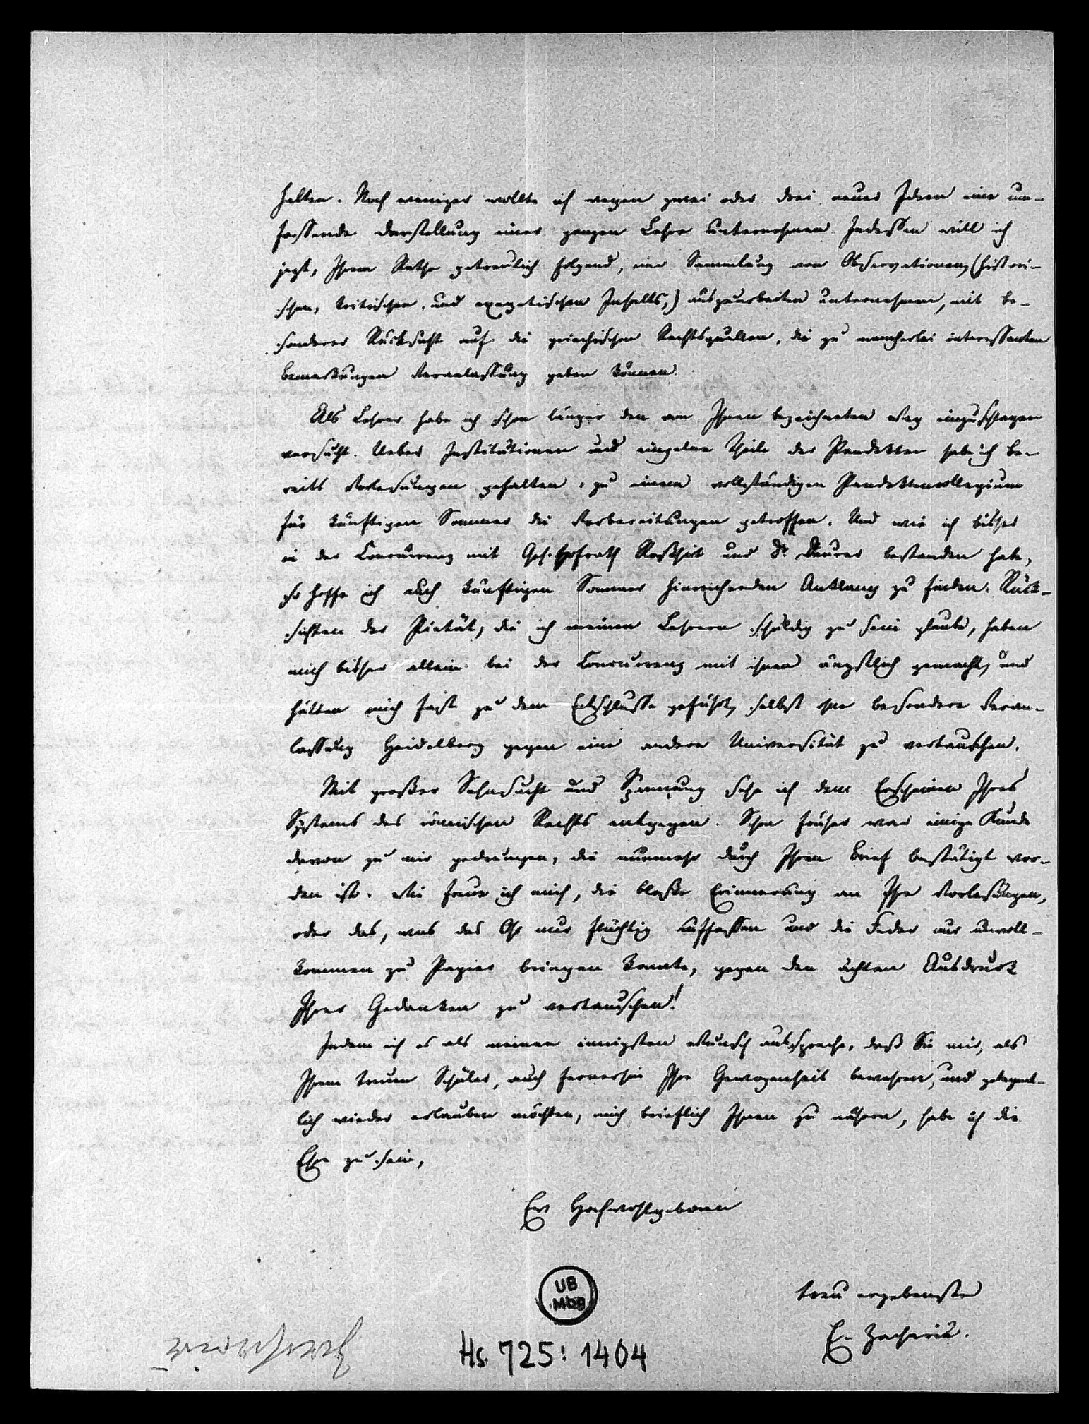 halten. Noch weniger wollte ich wegen zwei oder drei neuer Ideen eine um-
fassende Darstellung einer ganzen Lehre unternehmen. Indessen will ich
jezt, Ihrem Rathe getreulich folgend, eine Sammlung von Observationen, (histori-
schen, kritischen, und exegetischen Inhalts,) auszuarbeiten unternehmen, mit be-
sonderer Rücksicht auf die griechischen Rechtsquellen, die zu mancherlei interessanten
Bemerkungen Veranlassung geben können.
Als Lehrer habe ich schon länger den von Ihnen bezeichneten Weg einzuschlagen
versucht. Ueber Institutionen und einzelne Theile der Pandekten habe ich be-
reits Vorlesungen gehalten, zu einem vollständigen Pandektencollegium
für künftigen Sommer die Vorbereitungen getroffen. Und wie ich bisher
in der Concurrenz mit Geh. Hofrath Roßhirt und Dr. Deurer bestanden habe,
so hoffe ich auch künftigen Sommer hinreichenden Anklang zu finden. Rück-
sichten der Pietät, die ich meinen Lehrern schuldig zu sein glaube, haben
mich bisher allein bei der Concurrenz mit ihnen ängstlich gemacht, und
hätten mich fast zu dem Entschlusse geführt, selbst ohne besondere Veran-
lassung Heidelberg gegen eine andere Universität zu vertauschen.
Mit großer Sehnsucht und Spannung sehe ich dem Erscheinen Ihres
Systems des römischen Rechts entgegen. Schon früher war einige Kunde
davon zu mir gedrungen, die nunmehr durch Ihren Brief bestätigt wor-
den ist. Wie freue ich mich, die bloße Erinnerung an Ihre Vorlesungen,
oder das, was das Ohr nur flüchtig auffassen und die Feder nur unvoll-
kommen zu Papier bringen konnte, gegen den ächten Ausdruck
Ihrer Gedanken zu vertauschen!
Indem ich es als meinen innigsten Wunsch ausspreche, daß Sie mir, als
Ihrem treuen Schüler, auch fernerhin Ihre Gewogenheit bewahren, und gelegent-
lich wieder erlauben möchten, mich brieflich Ihnen zu nähern, habe ich die
Ehre zu sein,
Ew Hochwohlgeboren
treu ergebenster
E. Zachariä.
UB
MbB
Hs. 725: 1404
Zachariä